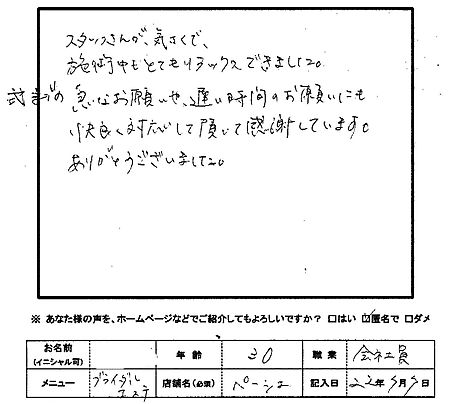 スタッフさんが、気さくで、
施術中もとてもリラックスできました。
急なお願いや、遅い時間のお願いにも
快良く対応して頂いて感謝しています。
ありがとうございました。
※ あなた様の声を、ホームページなどでご紹介してもよろしいですか? □はい ☑匿名で □ダメ
お名前
(イニシャル可) 年齢 30 職業 会社員
メニュー ブライダル
エステ 店舗名(必須) ペーシェ 記入日 22年9月9日